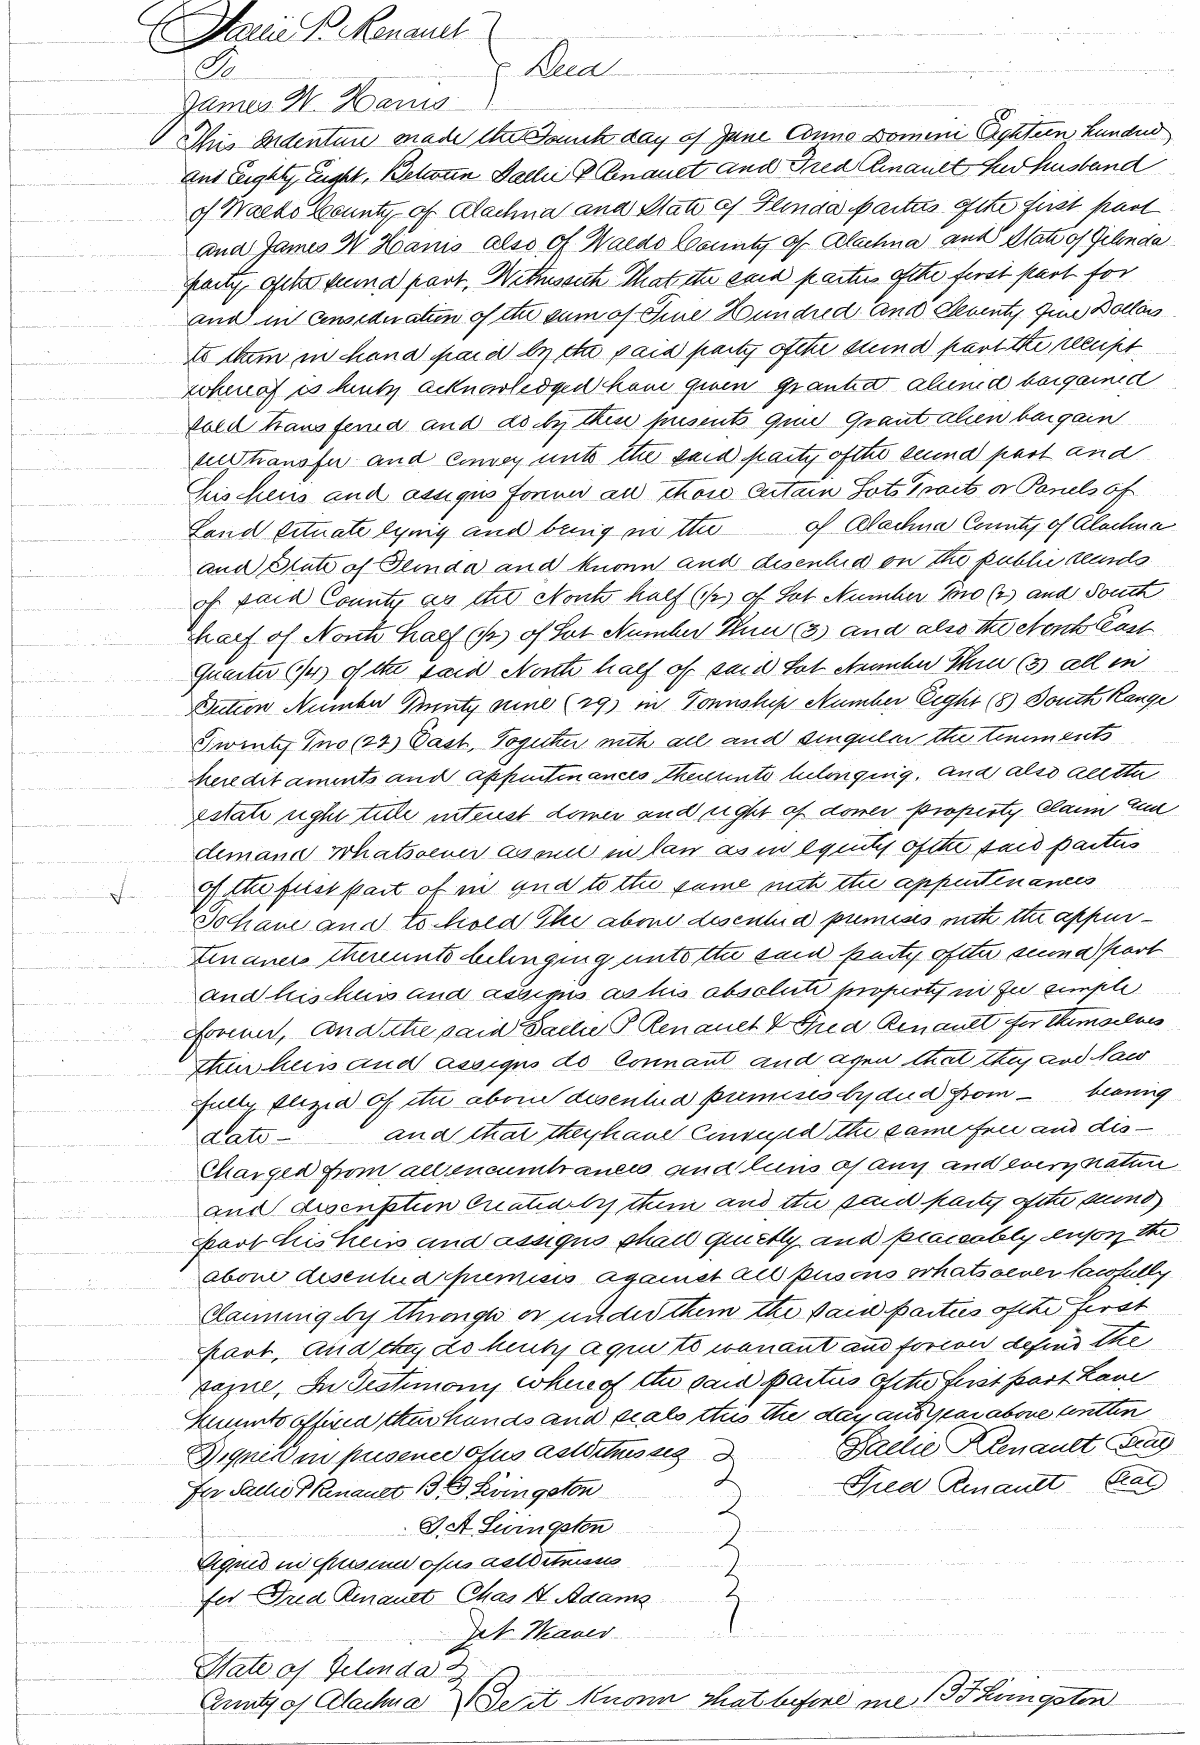 Sallie P. Renault
To } Deed
James W. Harris
This Indenture made the Fourth day of June Anno Domini Eighteen hundred
and Eighty Eight, Between Sallie P Renault and Fred Renault her husband
of Waldo County of Alachua and State of Florida parties of the first part
and James W Harris also of Waldo County of Alachua and State of Florida
party of the second part, Witnesseth That the said parties of the first part for
and in consideration of the sum of Five Hundred and Seventy five Dollars
to them in hand paid by the said party of the second part the receipt
whereof is hereby acknowledged have given granted aliened bargained
sold transferred and do by these presents give grant alien bargain
sell transfer and convey unto the said party of the second part and
his heirs and assigns forever all those certain Lots Tracts or Parcels of
Land situate lying and being in the of Alachua County of Alachua
and State of Florida and known and described on the public records
of said County as the North half (1/2) of Lot Number Two (2) and South
half of North half (1/2) of Lot Number Three (3) and also the North East
quarter (1/4) of the said North half of said Lot Number Three (3) all in
Section Number Twenty nine (29) in Township Number Eight (8) South Range
Twenty Two (22) East, Together with all and singular the tenements
hereditaments and appurtenances thereunto belonging. and also all the
estate right title interest dower and right of dower property claim and
demand whatsoever as well in law as in equity of the said parties
of the first part of in and to the same with the appurtenances
To have and to hold The above described premises with the appur-
tenances thereunto belonging unto the said party of the second part
and his heirs and assigns as his absolute property in fee simple
forever, and the said Sallie P Renault & Fred Renault for themselves
their heirs and assigns do covenant and agree that they are law
fully seized of the above described premises by deed from - bearing
date - and that they have conveyed the same free and dis-
charged from all encumbrances and liens of any and every nature
and description created by them and the said party of the second
part his heirs and assigns shall quietly and peaceably enjoy the
above described premises against all persons whatsoever lawfully
claiming by through or under them the said parties of the first
part, and they do hereby agree to warrant and forever defend the
same, In Testimony whereof the said parties of the first part have
hereunto affixed their hands and seals this the day and year above written
Signed in presence of us as Witnesses } Sallie P Renault Seal
for Sallie P Renault B. F Livingston Fred Renault Seal
S. A. Livingston
Signed in presence of us as Witnesses
for Fred Renault Chas H Adams
State of Florida }
County of Alachua } Be it Known that before me B F Livingston